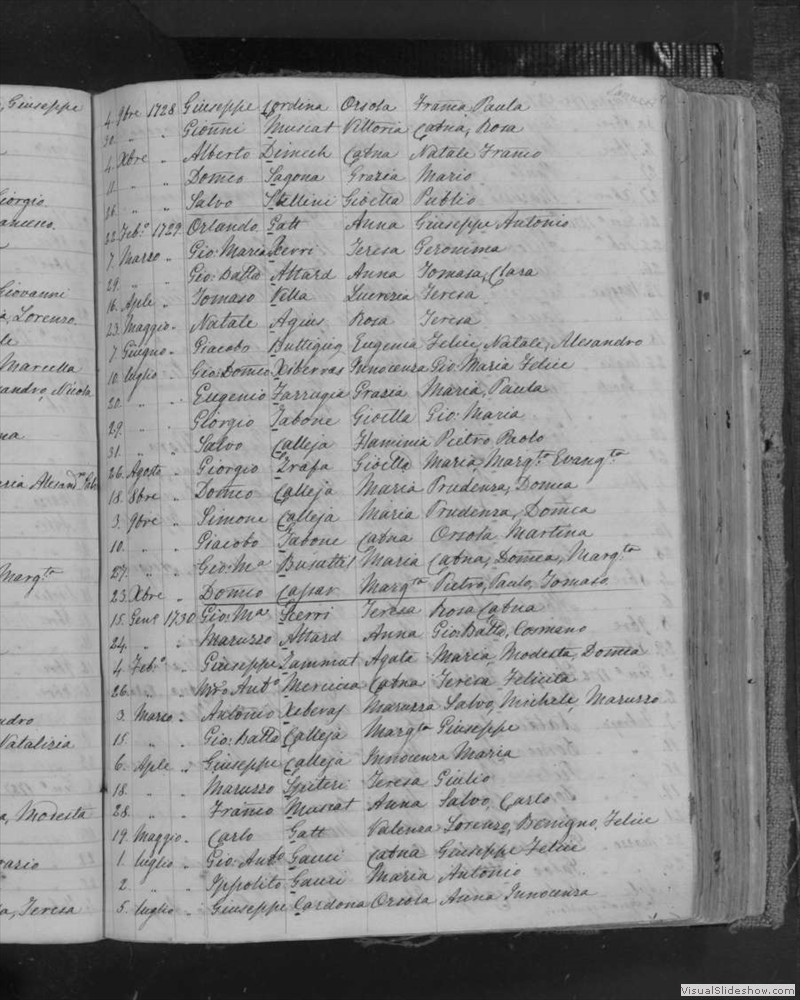 Giuseppe
Giorgio
Giovanni
Lorenzo.
Marcella
Nicola
Marg.ta
Natalizia
Modesta
Teresa
4. 9bre 1728 Giuseppe Cordina Orsola Franca Paula
30. " " Gionni Muscat Vittoria Catna, Rosa
4. Xbre " Alberto Dimech Catna Natale Franco
11. " " Domco Sagona Grazia Mario
26. " " Salvo Stellini Gioella Publio
22. Feb.o 1729. Orlando Gatt Anna Giuseppe Antonio
7. Marzo " Gio: Maria Xerri Teresa Geronima
29. " " Gio: Batta Attard Anna Tomasa, Clara
16. Aple " Tomaso Vella Lucrezia Teresa
23. Maggio " Natale Agius Rosa Teresa
7. Giugno " Giacobo Buttigieg Eugenia Felice, Natale, Alesandro
10. luglio " Gio: Domco Xiberras Innocenza Gio: Maria Felice
20. " " Eugenio Farrugia Grazia Maria, Paula
29. " " Giorgio Tabone Gioella Gio: Maria
31. " " Salvo Calleja Flaminia Pietro Paolo
26. Agosto " Giorgio Zrafa Gioella Maria, Marg.ta Evang.ta
18. 8bre " Domco Calleja Maria Prudenza, Domca
3. 9bre " Simone Calleja Maria Prudenza, Domca
10. " " Giacobo Tabone Catna Orsola Martina
27. " " Gio: M.a Busuttil Maria Catna, Domca, Marg.ta
23. Xbre " Domco Caspar Marg.ta Pietro, Paulo, Tomaso
15. Gen.o 1730. Gio: M.a Scerri Teresa Rosa Catna
24. " " Maruzzo Attard Anna Gio: Batta, Cosmano
4. Feb.o " Giuseppe Zammut Agata Maria Modesta, Domca
26. " " Ant.o Mercieca Catna Teresa Felicita
3. Marzo " Antonio Xeberas Maruzza Salvo, Michele Maruzzo
15. " " Gio: Batta Calleja Marg.ta Giuseppe
6. Aple " Giuseppe Calleja Innocenza Maria
18. " " Maruzzo Spiteri Teresa Giulio
28. " " Franco Muscat Anna Salvo, Carlo
19. Maggio " Carlo Gatt Valenza Lorenzo, Benigno, Felice
1. luglio " Gio: Ant.o Gauci Catna Giuseppe Felice
2. " " Ippolito Gauci Maria Antonio
5. luglio " Giuseppe Cardona Orsola Anna Innocenza
VisualSlideshow.com